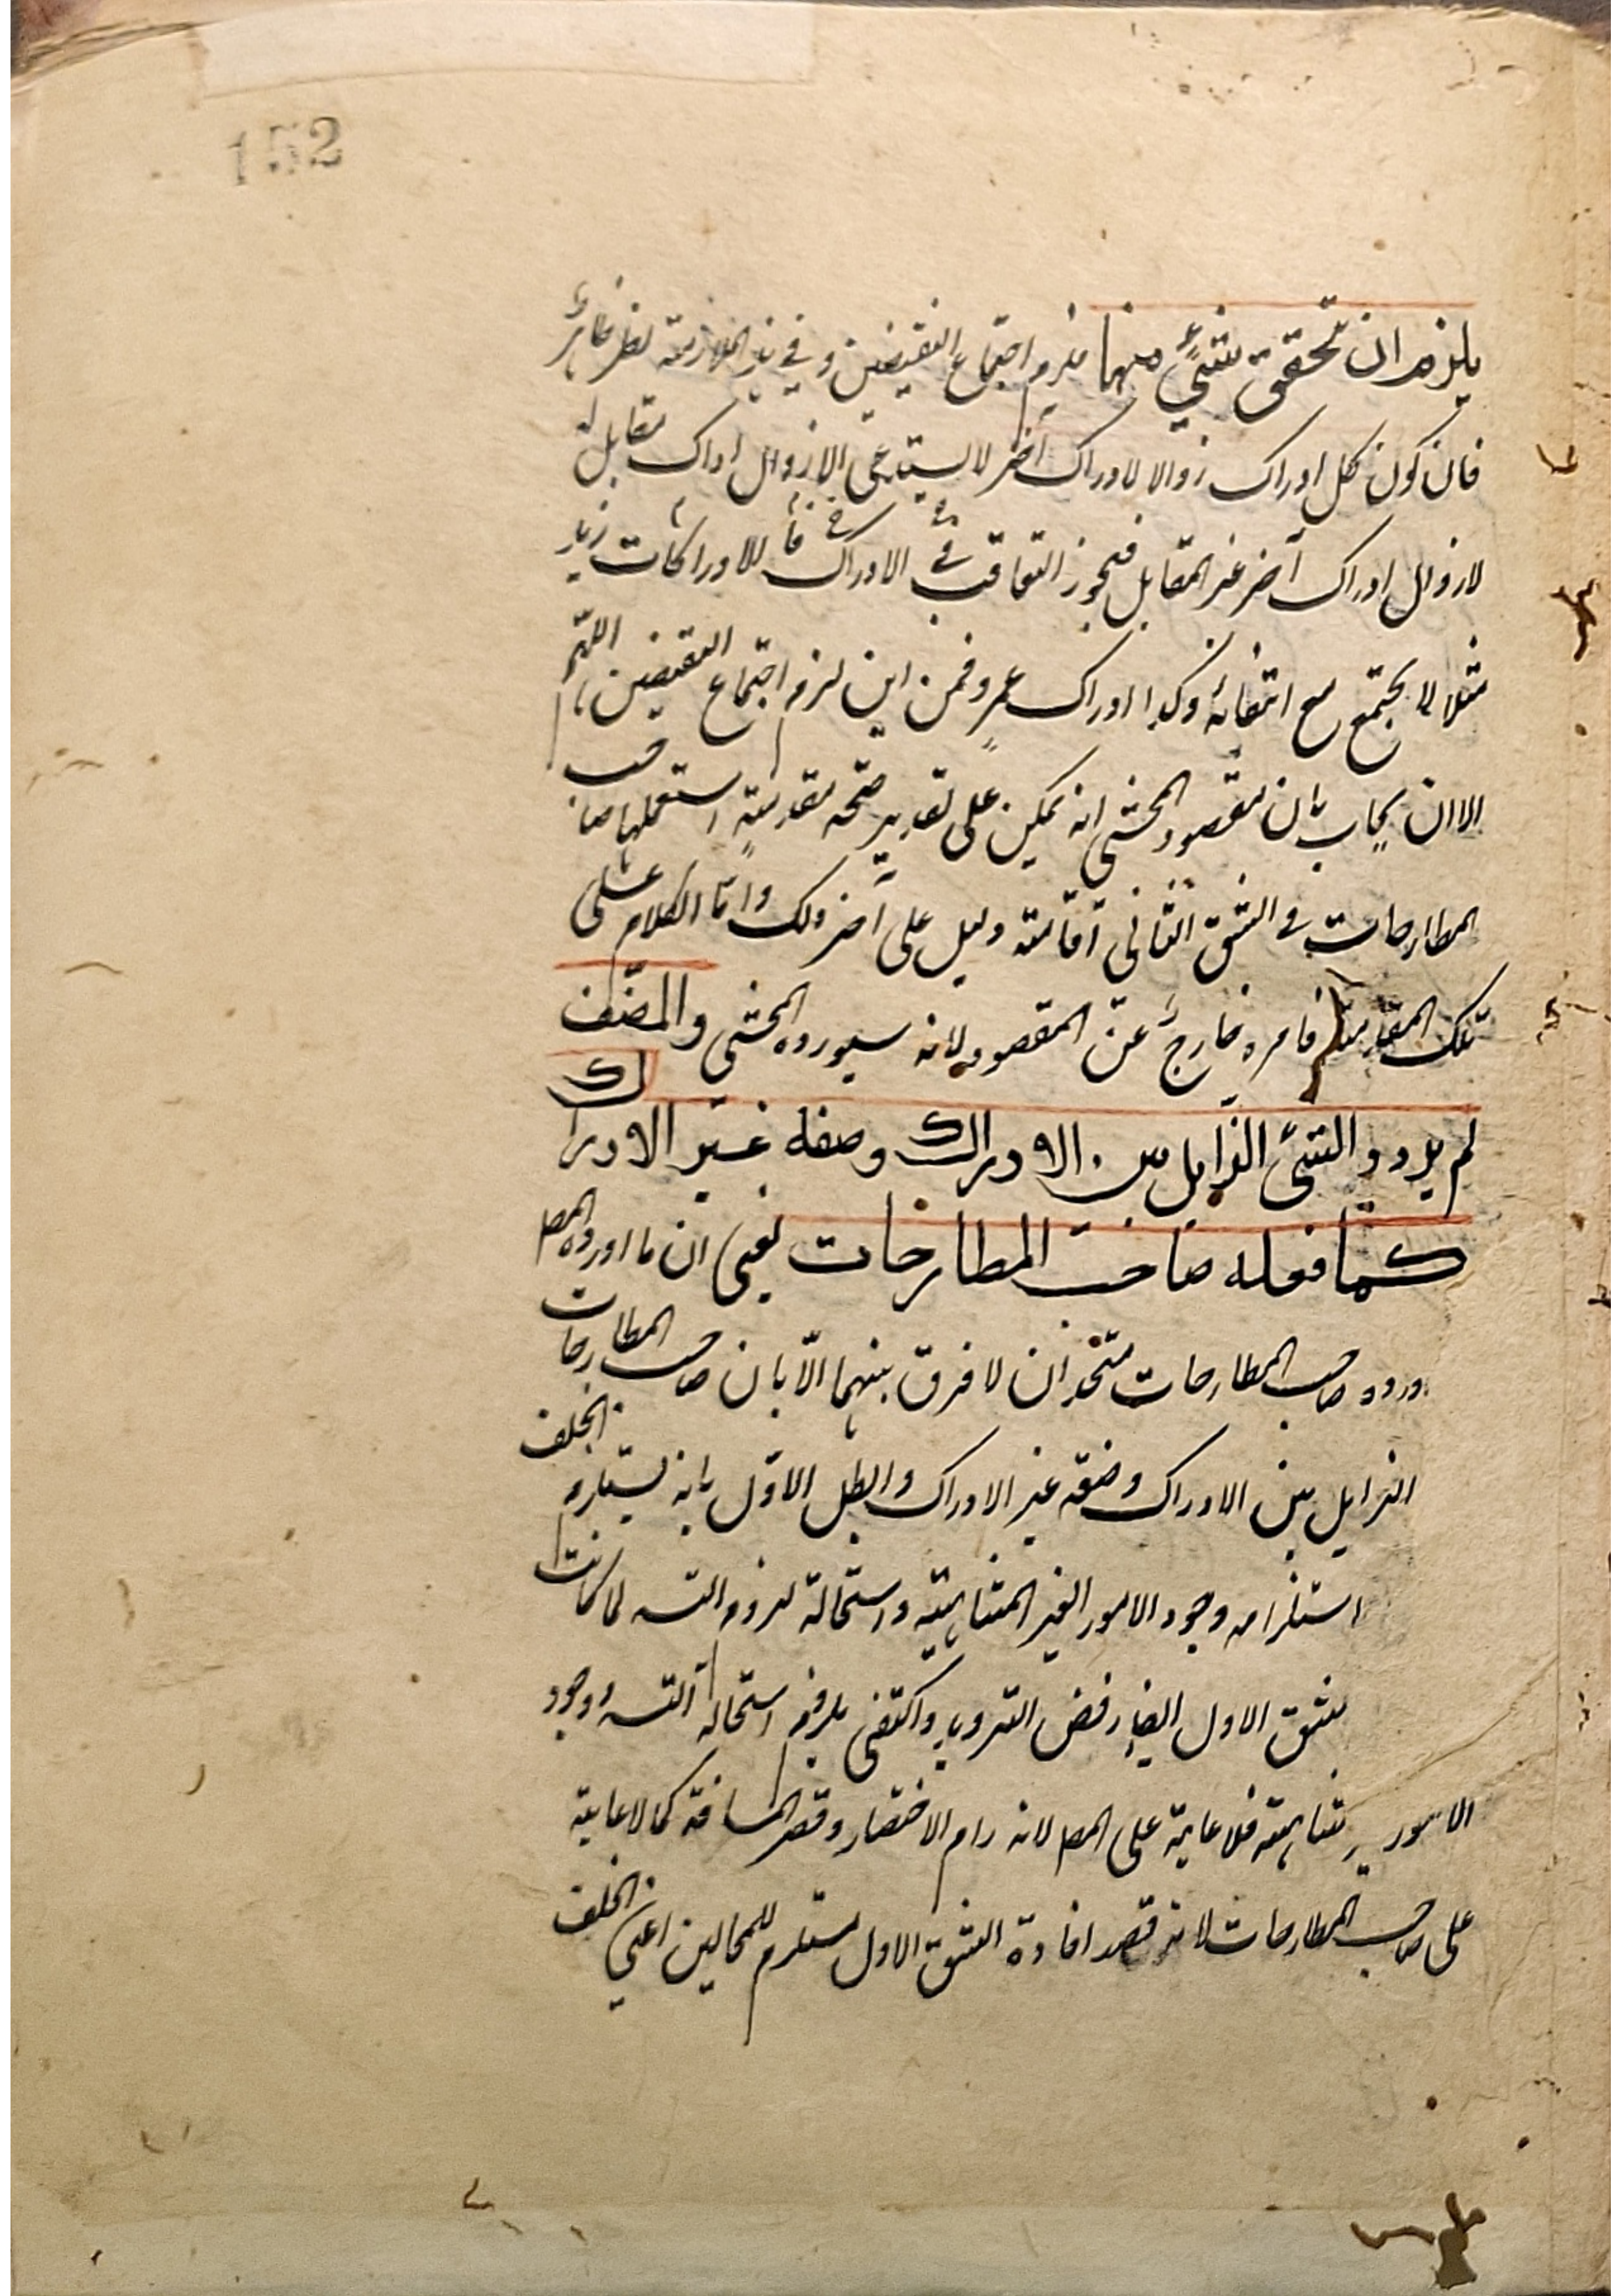 152
يلزم ان تحقق شيئ منها فلزم اجتماع النقيضين وفي هذه الملازمة نظر ظاهر
فان كون كل ادراك زوالا لادراك آخر لا يستدعي الا زوال ادراك مقابل له
لا زوال ادراك آخر غير المقابل فيجوز التعاقب في الادراك للادراكات زيد
مثلا لا يجتمع مع انتفائه وكذا ادراك عمرو فمن اين لزم اجتماع النقيضين اللهم
الا ان يجاب بان مقصود المحشي انه يمكن على تقدير صحة مقدمة استعملها صاحب
المطارحات في الشق الثاني اقامة دليل على آخر ذلك واما الكلام على
تلك المقدمة فامره خارج عن المقصود لانه سيورده المحشي والمصنف
لم يردد الشئ الزايل بين الادراك وصفة غير الادراك
كما فعله صاحب المطارحات يعني ان ما اورده المص
ورده صاحب المطارحات متحدان لا فرق بينهما الا بان صاحب المطارحات
الزايل بين الادراك وصفة غير الادراك وابطل الاول بانه يستلزم الخلف
استلزامه وجود الامور الغير المتناهية واستحالة لزوم التسـ لما كانت
شق الاول ايضا رفض الترديد واكتفى بلزوم استحالة التسـ ووجود
الامور متناهية فلا عايبة على المص لانه رام الاختصار وقصر المسافة كما لا عايبة
على صاحب المطارحات لانه قصد افادة الشق الاول مستلزم للمحالين اعني الخلف